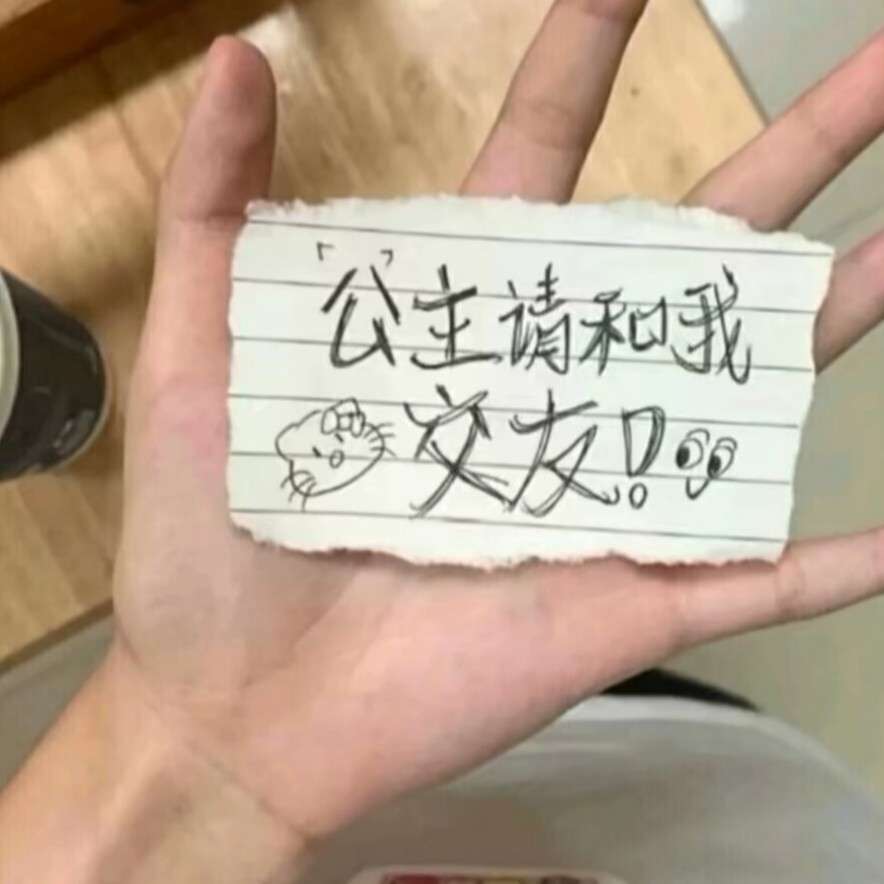 「公」主请和我
交友！